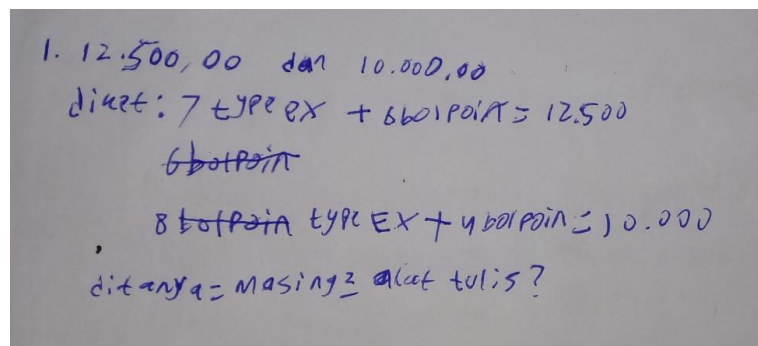 1. 12.500,00 dan 10.000,00
diket: 7 type ex + 6 bolpoin = 12.500
6 bolpoin
8 bolpoin type EX + 4 bolpoin = 10.000
ditanya = Masing2 alat tulis?